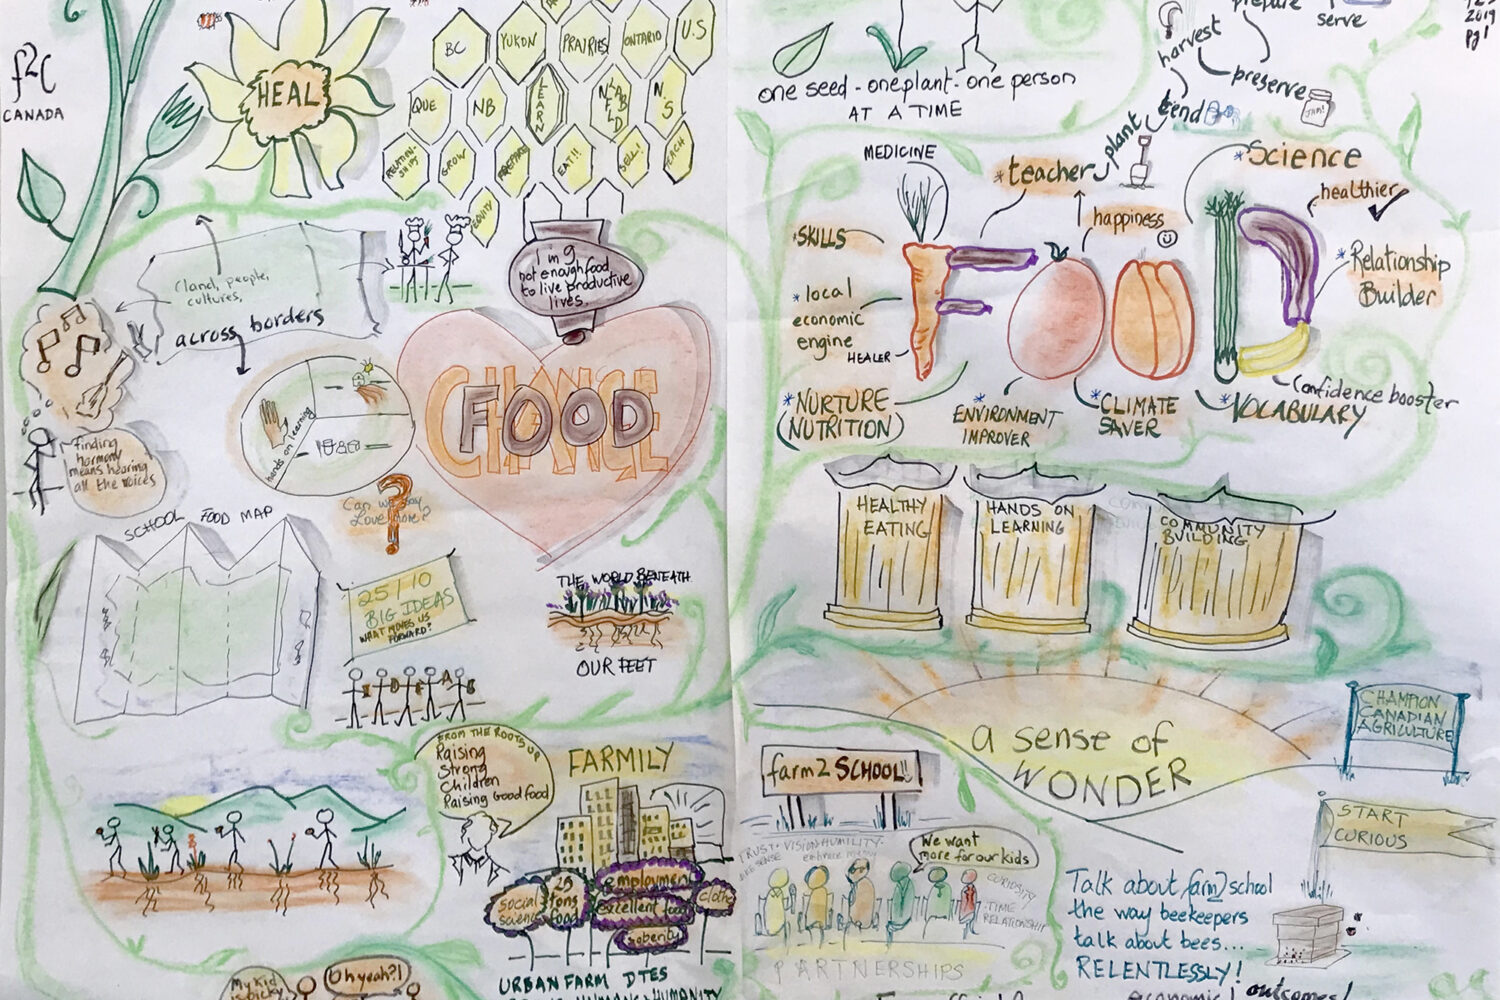 f2c
CANADA
HEAL
BC
YUKON
PRAIRIES
ONTARIO
U.S
QUE
NB
LEARN
NFLD
LAB
N.S
RELATION-
SHIPS
GROW
PREPARE
EAT!!
SELL!
TEACH
EQUITY
(land, people,
cultures,
across borders
1 in 9
not enough food
to live productive
lives.
CHANGE
FOOD
hands on learning
finding
harmony
means hearing
all the voices
Can we say
Love more?
SCHOOL FOOD MAP
25/10
BIG IDEAS
WHAT MOVES US
FORWARD?
THE WORLD BENEATH
OUR FEET
FROM THE ROOTS UP
Raising
Strong
Children
Raising Good food
FARMILY
social
science
29
tons
food
employment
excellent food
soberity
clothe
URBAN FARM DTES
My Kid
is picky
Oh yeah?!
prepare
serve
harvest
preserve
JAM!
2019
pg 1
one seed - one plant - one person
AT A TIME
tend
plant
MEDICINE
*teacher
*Science
healthier
happiness
*SKILLS
*Relationship
Builder
*local
economic
engine
HEALER
FOOD
*NURTURE
(NUTRITION)
ENVIRONMENT
IMPROVER
*CLIMATE
SAVER
*VOCABULARY
Confidence booster
HEALTHY
EATING
HANDS ON
LEARNING
COMMUNITY
BUILDING
a sense of
WONDER
CHAMPION
CANADIAN
AGRICULTURE
farm2SCHOOL!!
START
CURIOUS
TRUST • VISION HUMILITY
We want
more for our kids
CURIOSITY
TIME
RELATIONSHIP
PARTNERSHIPS
Talk about farm2school
the way beekeepers
talk about bees...
RELENTLESSLY!
economic! outcomes!